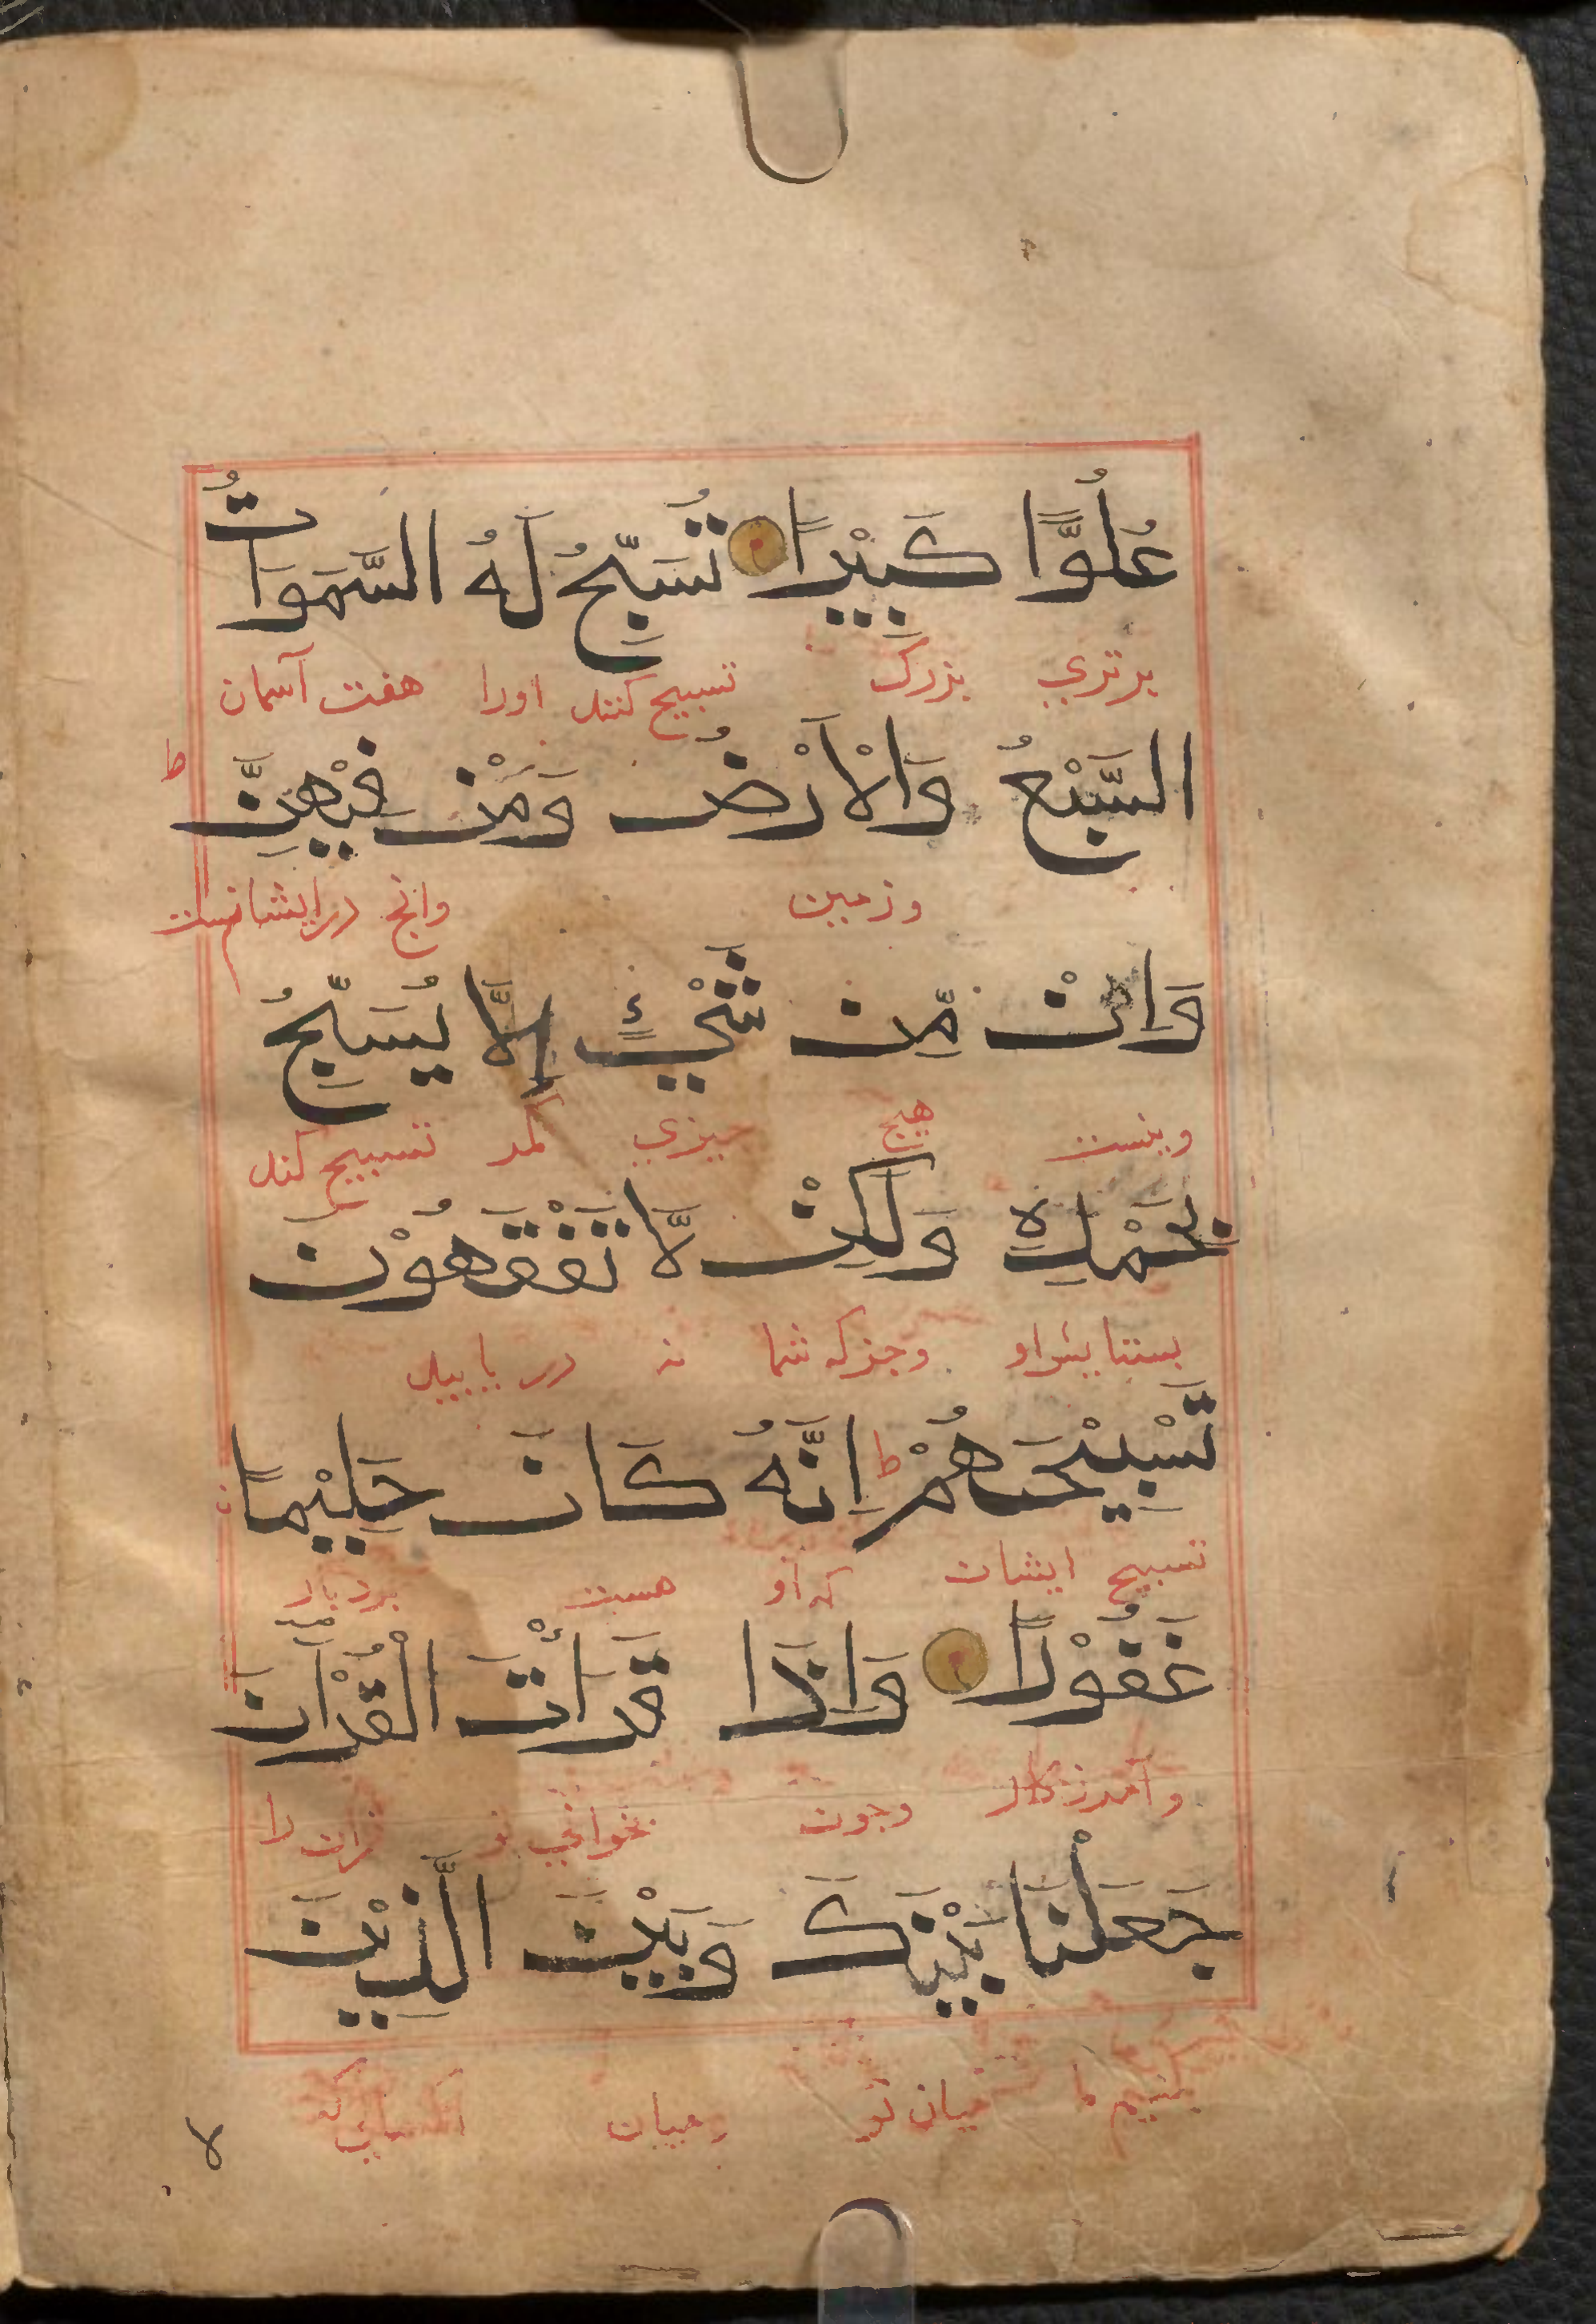 عُلُوًّا كَبِيْرًا تُسَبِّحُ لَهُ السَّمَوَاتُ
برتري بزرک تسبیح کنند اورا هفت آسمان
السَّبْعُ وَالْاَرْضُ وَمَنْ فِيْهِنَّ ط
وزمین وانچ درایشانست
وَاِنْ مِّنْ شَيْءٍ اِلَّا يُسَبِّحُ
ونیست هیچ جیزي مکر تسبیح کند
بِحَمْدِهٖ وَلَكِنْ لَّا تَفْقَهُوْنَ
بستایش او وجزکه شما نه دریابید
تَسْبِيْحَهُمْ ط اِنَّهُ كَانَ حَلِيْمًا
تسبیح ایشان که او هست بردبار
غَفُوْرًا وَاِذَا قَرَأْتَ الْقُرْاٰنَ
وآمرزکار وجون بخواني تو قران را
جَعَلْنَا بَيْنَكَ وَبَيْنَ الَّذِيْنَ
کنیم ما میان تو ومیان آنکسان که
لا